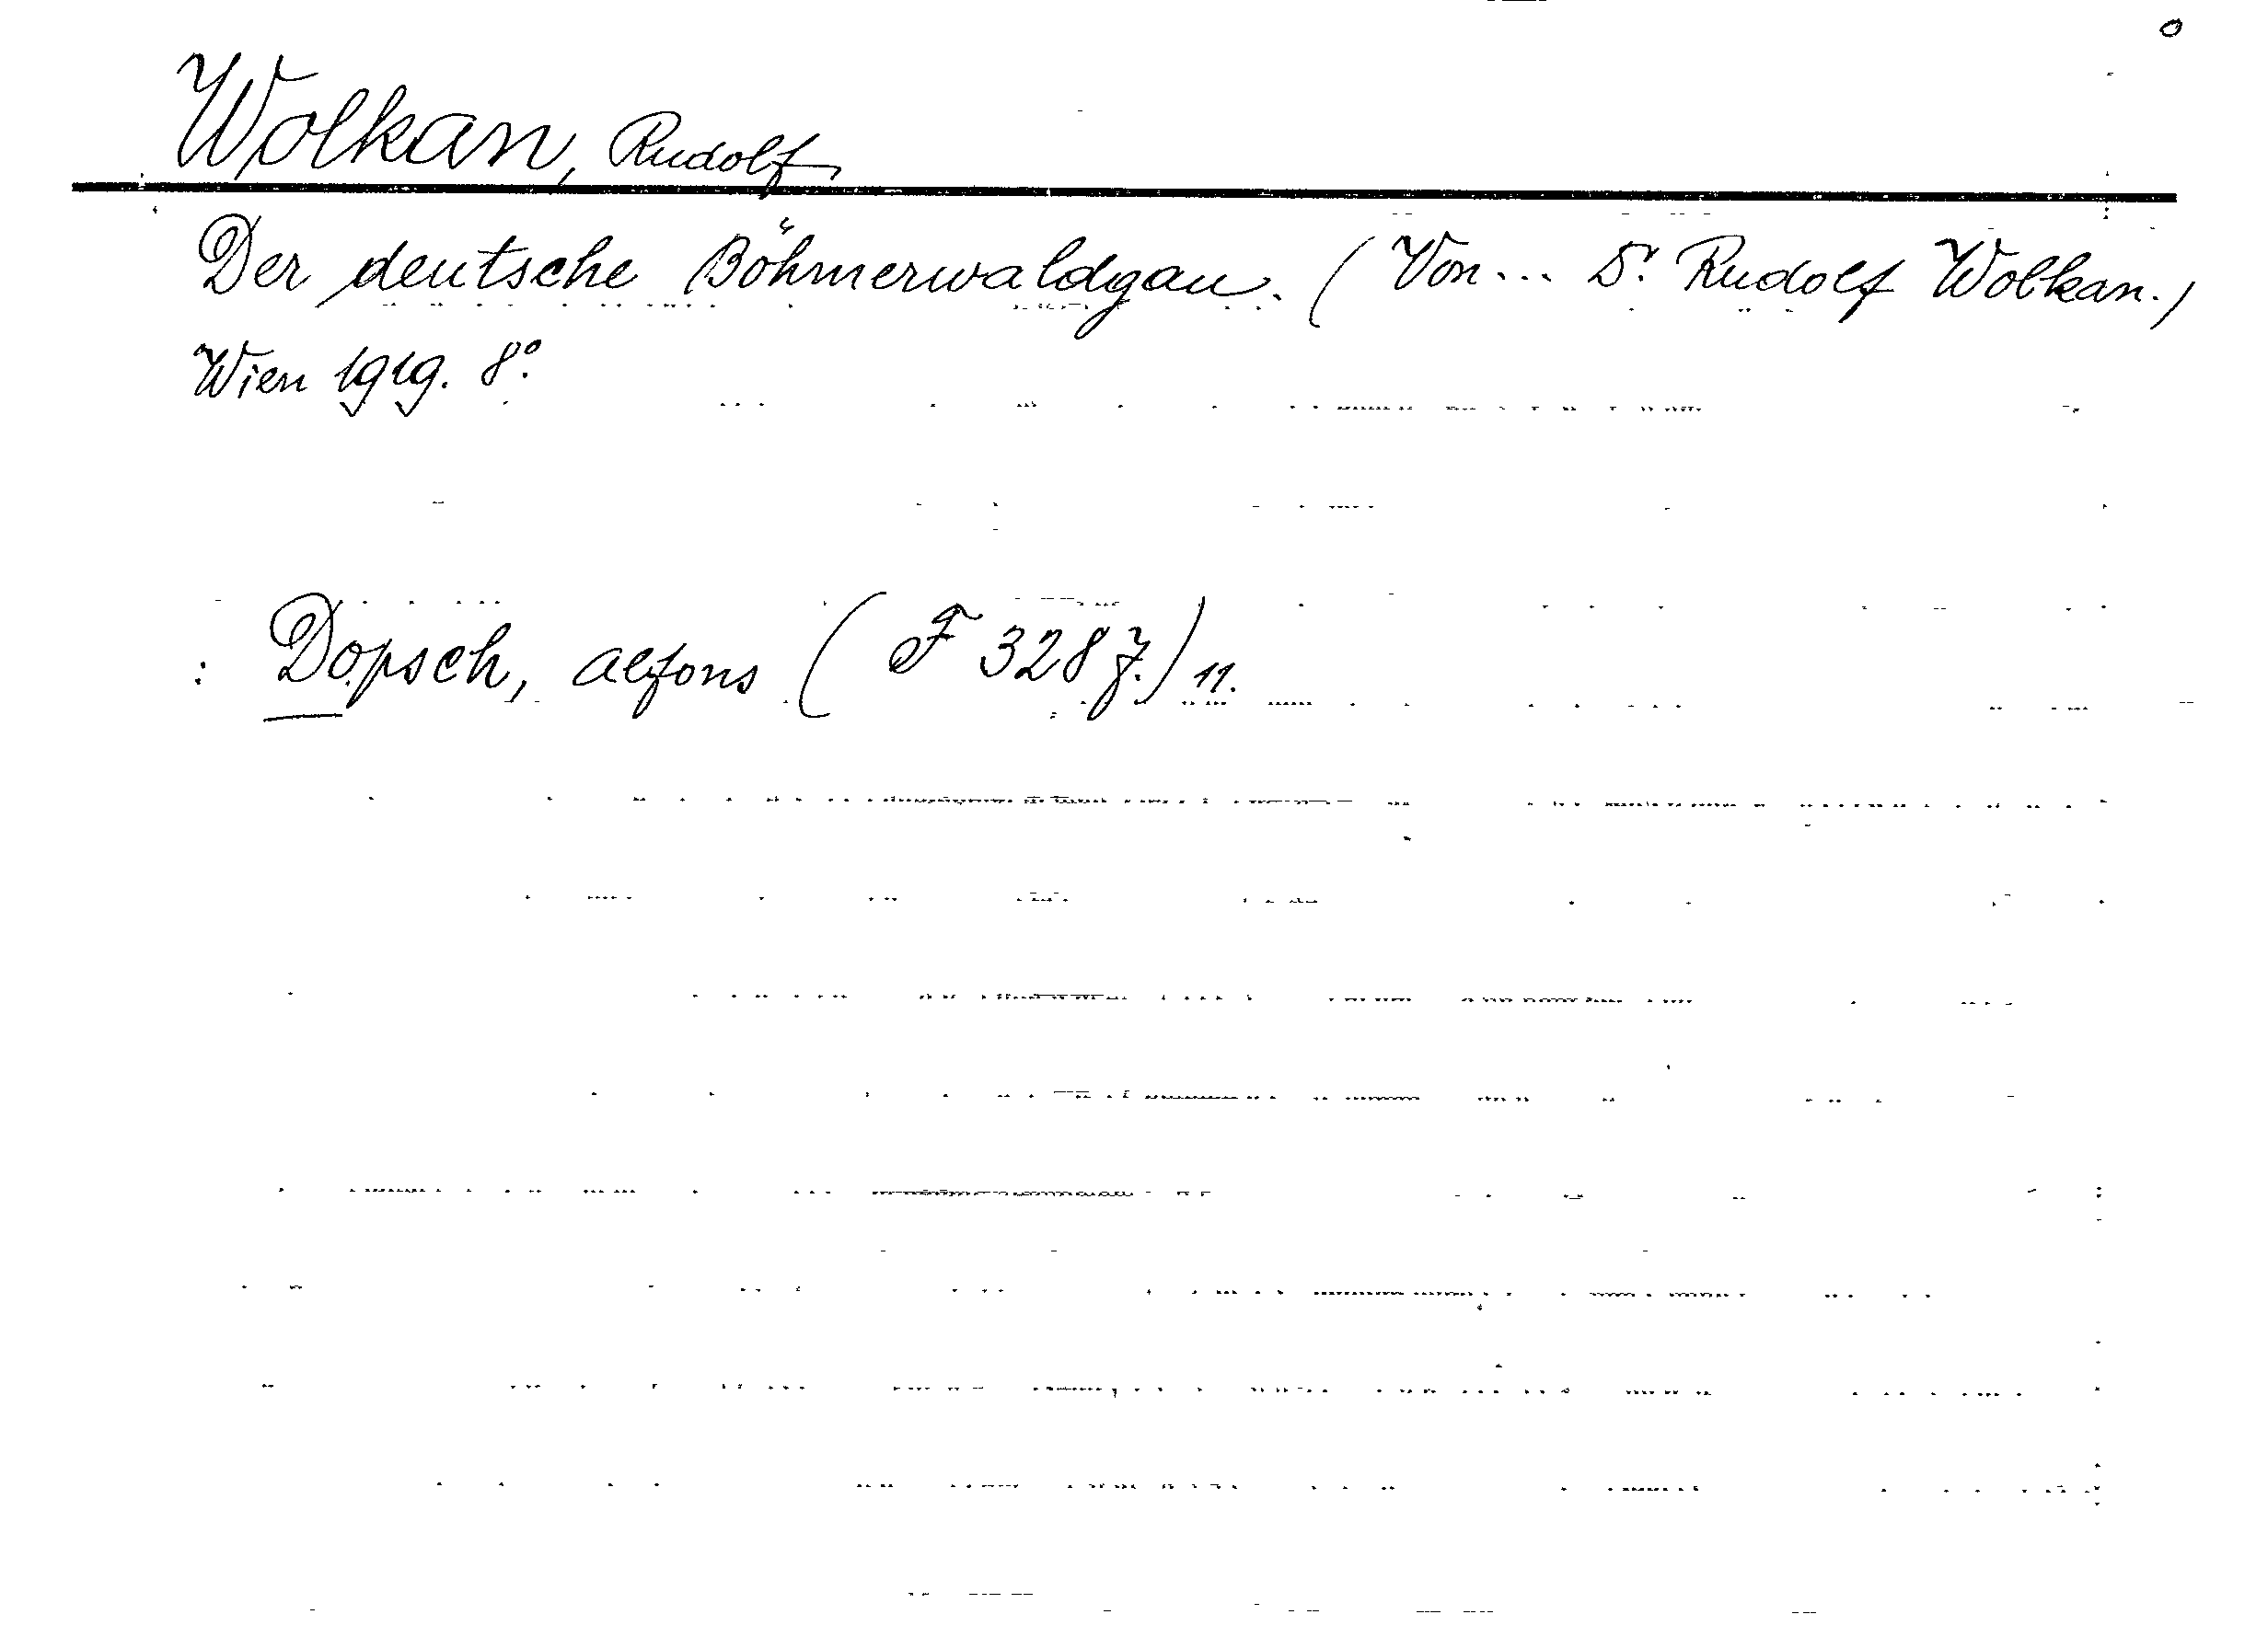 Wolkan, Rudolf,
Der deutsche Böhmerwaldgau. (Von... Dr. Rudolf Wolkan.)
Wien 1919. 8°.
: Dopsch, Alfons (F 3287.) 11.